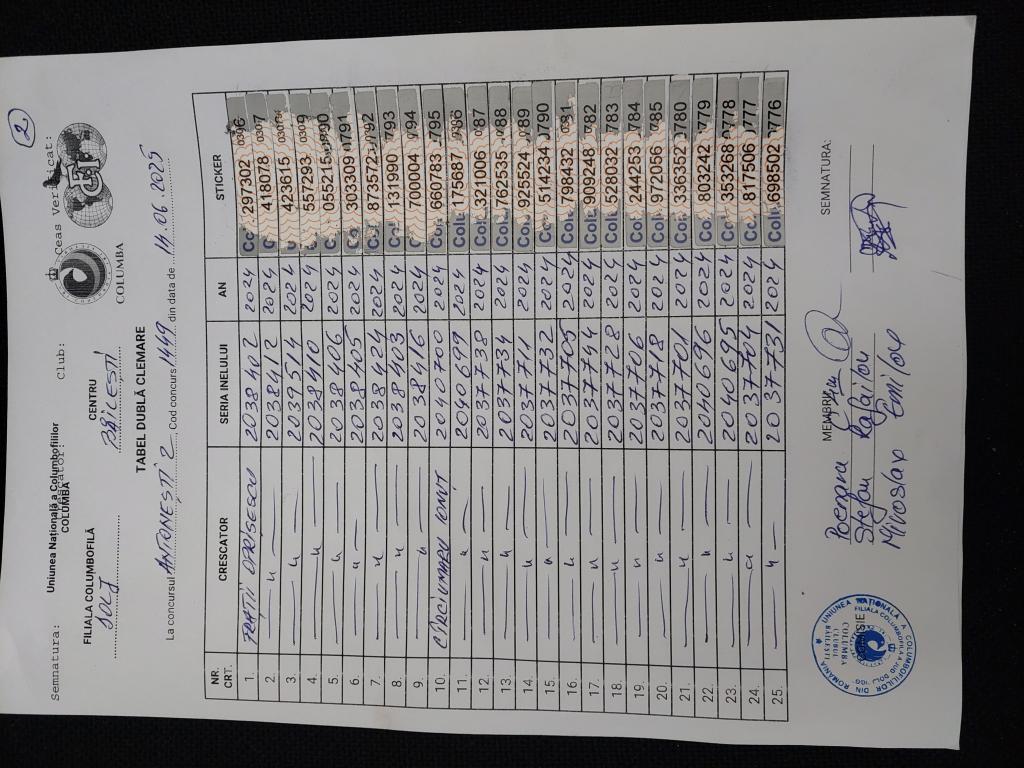 2
Semnatura: Club: Ceas Verificat:
Uniunea Națională a Columbofililor
COLUMBA
FILIALA COLUMBOFILĂ CENTRU
DOLJ BĂILEȘTI
COLUMBA
TABEL DUBLĂ CLEMARE
La concursul ANTONEȘTI 2 Cod concurs 1449 din data de 14.06.2025
NR. CRT. CRESCATOR SERIA INELULUI AN STICKER
1. FRAȚII OPROȘESCU 2038402 2024 297302
2. —〃— 2038412 2024 418078
3. —〃— 2039514 2024 423615
4. —〃— 2038410 2024 557293
5. —〃— 2038406 2024 055215
6. —〃— 2038405 2024 303309 0791
7. —〃— 2038424 2024 873572
8. —〃— 2038403 2024 131990 0793
9. —〃— 2038416 2024 700004 0794
10. CÎRCIUMARU IONUȚ 2040700 2024 660783 0795
11. —〃— 2040699 2024 175687
12. —〃— 2037738 2024 321006
13. —〃— 2037734 2024 762535
14. —〃— 2037711 2024 925524
15. —〃— 2037732 2024 514234 0790
16. —〃— 2037705 2024 798432
17. —〃— 2037744 2024 909248 0782
18. —〃— 2037728 2024 528032 0783
19. —〃— 2037706 2024 244253 0784
20. —〃— 2037718 2024 972056
21. —〃— 2037701 2024 336352 0780
22. —〃— 2040696 2024 803242 0779
23. —〃— 2040695 2024 353268 0778
24. —〃— 2037704 2024 817506 0777
25. —〃— 2037731 2024 698502 0776
MEMBRII SEMNATURA:
Stefan Rafailă
Miroslav Emilă
UNIUNEA NAȚIONALĂ A COLUMBOFILILOR DIN ROMÂNIA
FILIALA COLUMBOFILA JUD DOLJ
COLUMBA
CLUBUL
BAILESTI